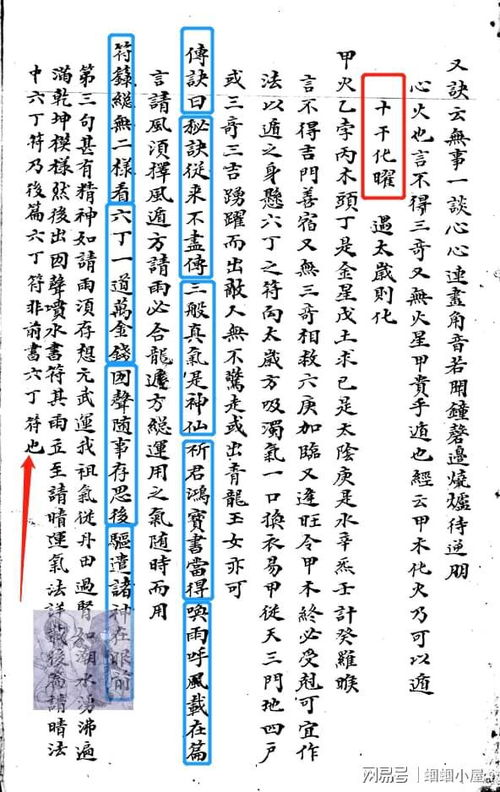 又訣云無事一談心心連畫角音若開鐘磬邊燒爐待逆朋
心火也言不得三奇又無火星甲貴乎遁也經云甲木化火乃可以遁
十干化曜 遇太歲則化
甲火乙孛丙木頭丁是金星戊土求已是太陰庚是水辛炁壬計癸羅睺
言不得吉門善宿又無三奇相救六庚加臨又違旺令甲木終必受剋可宜作
法以遁之身懸六丁之符向太歲方吸濁氣一口換衣易甲從天三門地四戶
或三奇三吉踴躍而出敵人無不驚走或出青龍玉女亦可
傳訣曰秘訣從来不盡傳三般真氣是神仙祈君鴻寶書當得喚雨呼風載在篇
言請風須擇風遁方請雨必合龍遁方總運用之氣随時而用
符籙総無二様看六丁一道萬金錢因聲随事存思後驅遣諸神在眼前
第三句甚有精神如請雨須存想元武運我祖氣從丹田過腎如潮水湧沸遍
滿乾坤模様然後出因聲噴水書符其雨立至請晴運氣法詳載後篇請晴法
中六丁符乃後篇六丁符非前書六丁符也
网易号 | 蝈蝈小屋